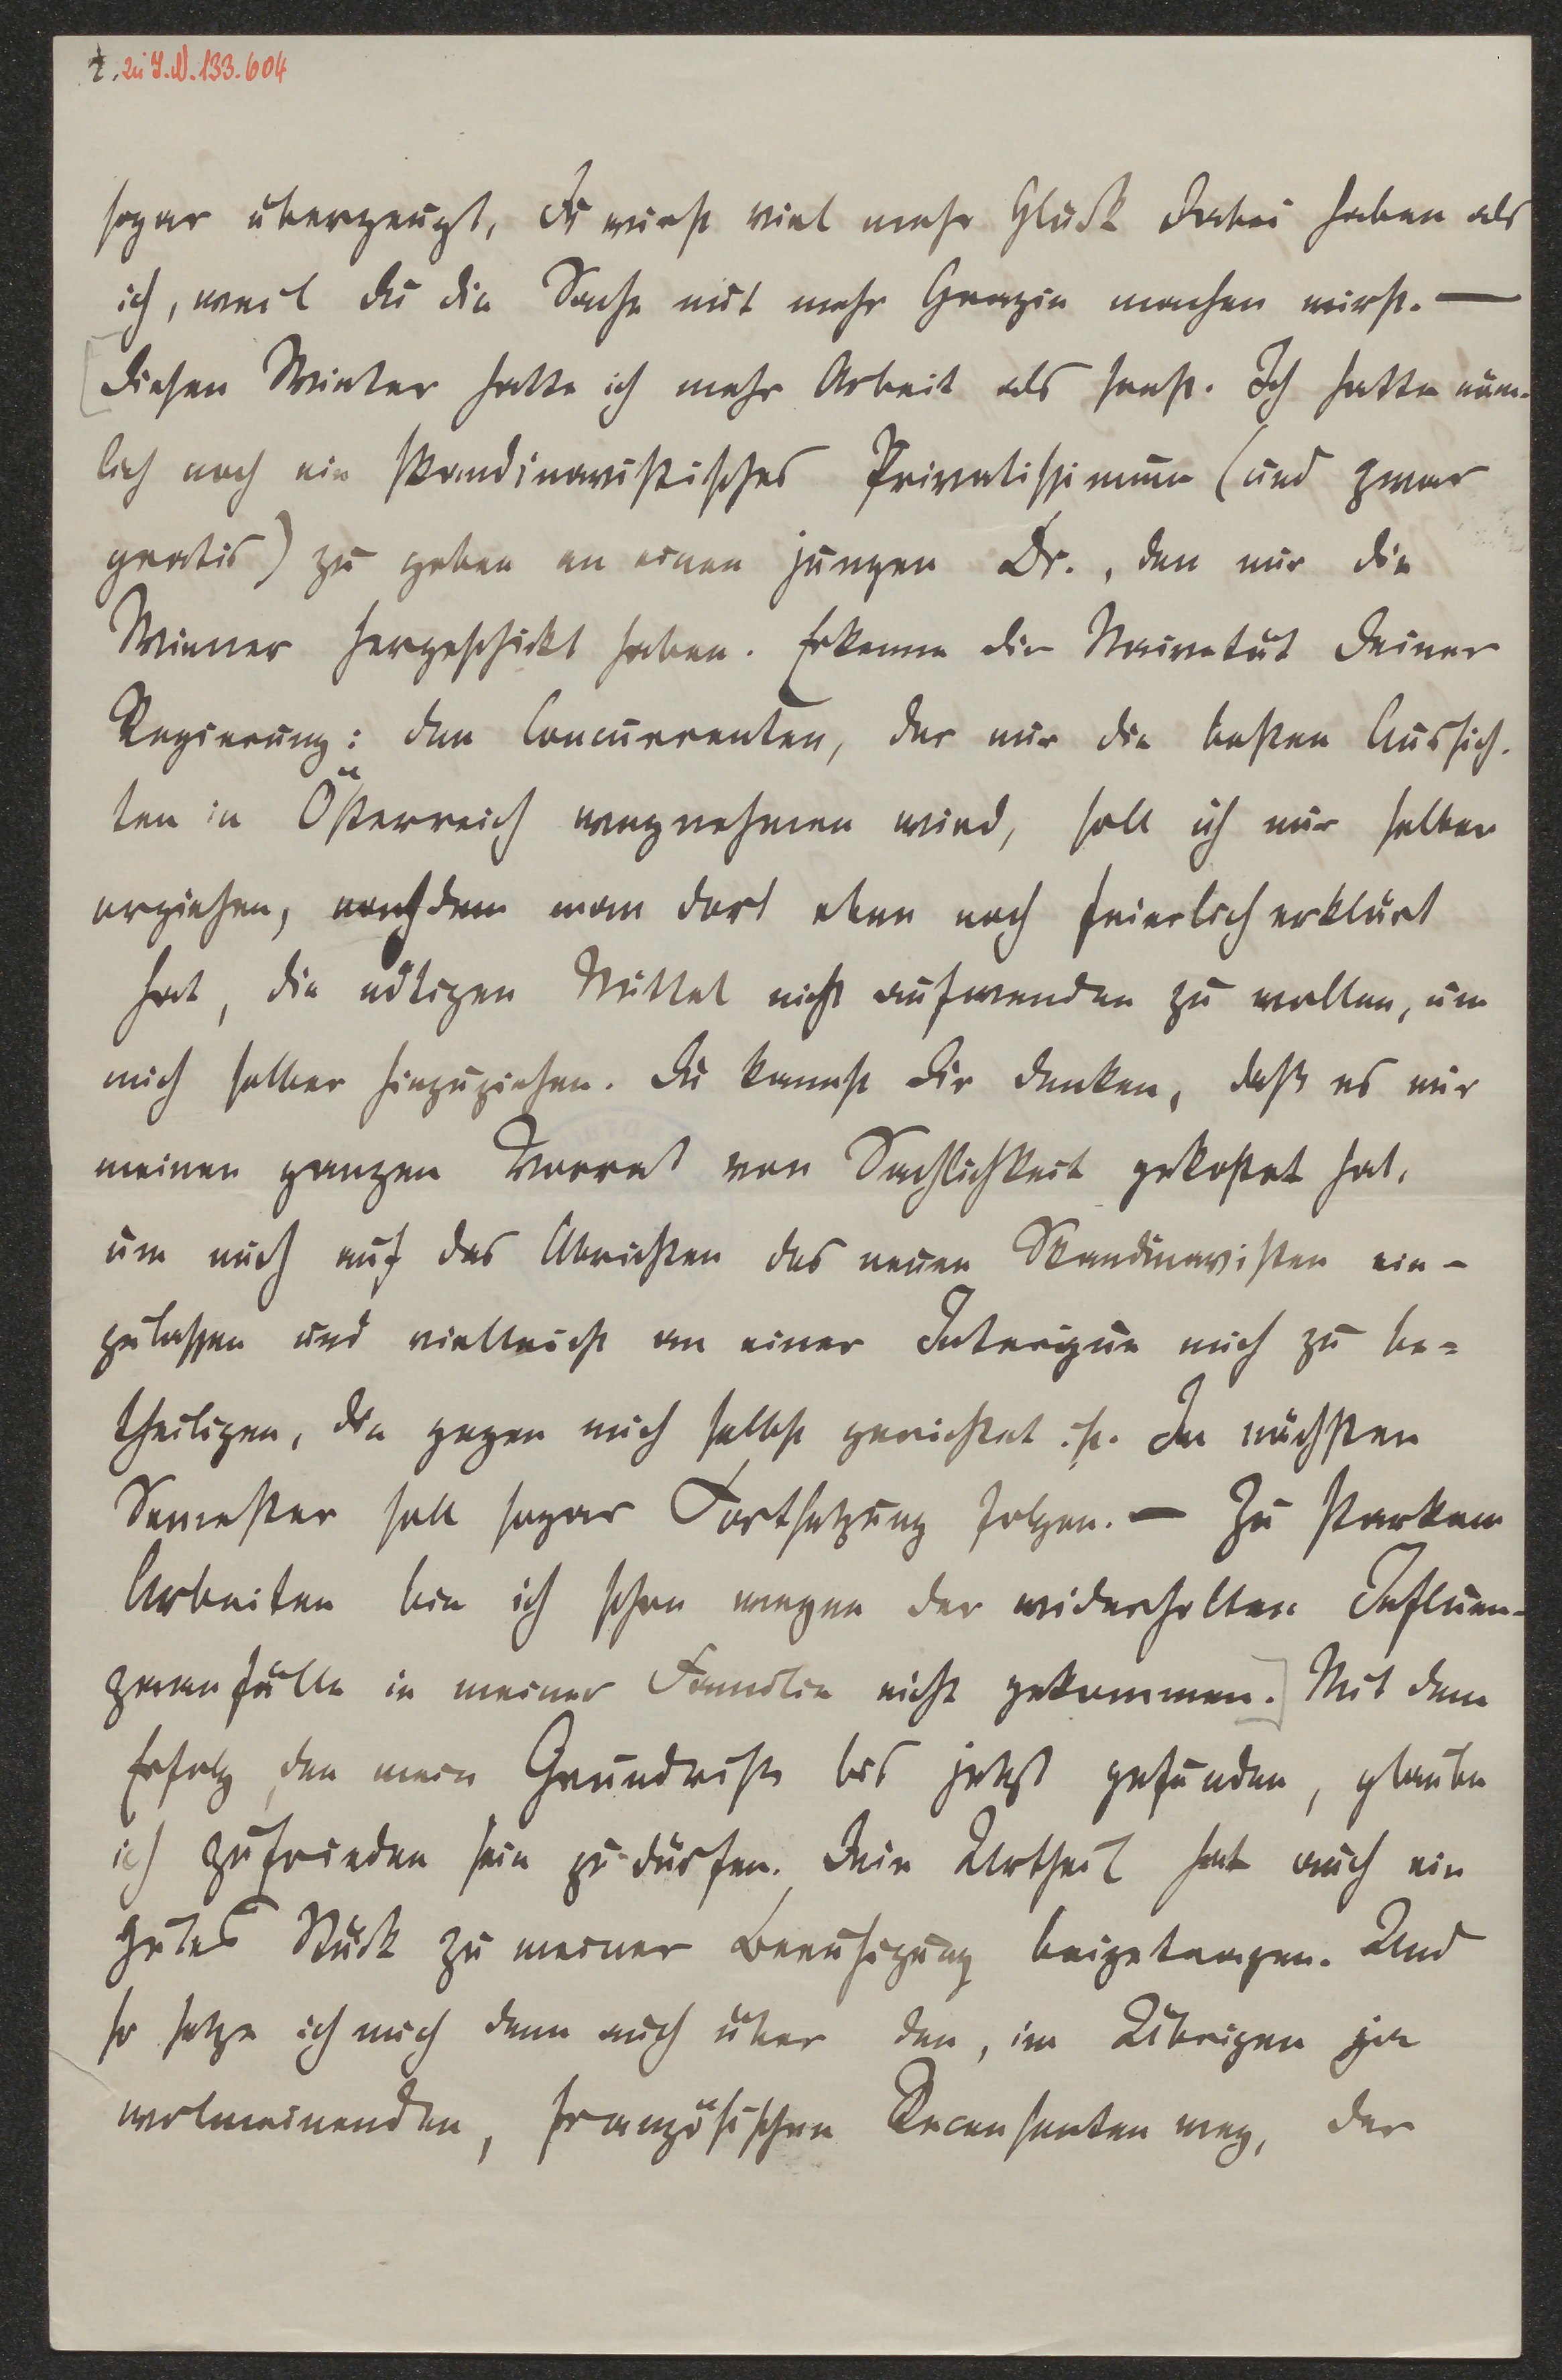 2. zu J.N. 133.604
sogar überzeugt, Du wirst viel mehr Glück dabei haben als
ich, weil du die Sache mit mehr Grazie machen wirst. —
[Diesen Winter hatte ich mehr Arbeit als sonst. Ich hatte näm-
lich noch ein skandinavistisches Privatissimum (und zwar
gratis) zu geben an einen jungen Dr., den mir die
Wiener hergeschickt haben. Erkenne die Naivetät Deiner
Regierung: den Concurrenten, der mir die besten Aussich-
ten in Österreich wegnehmen wird, soll ich mir selber
erziehen, nachdem man dort eben noch feierlich erklärt
hat, die nötigen Mittel nicht aufwenden zu wollen, um
mich selber hinzuziehen. Du kannst Dir denken, daß es mir
meinen ganzen Vorrat von Sachlichkeit gekostet hat,
um mich auf das Abrichten des neuen Skandinavisten ein-
zulassen und vielleicht an einer Intrigue mich zu be-
theiligen, die gegen mich selbst gerichtet ist. Im nächsten
Semester soll sogar Fortsetzung folgen. — Zu starkem
Arbeiten bin ich schon wegen der widerholten Influen-
zaanfälle in meiner Familie nicht gekommen.] Mit dem
Erfolg, den mein Grundriß bis jetzt gefunden, glaube
ich zufrieden sein zu dürfen. Dein Urtheil hat auch ein
gutes Stück zu meiner Beruhigung beigetragen. Und
so setze ich mich denn auch über den, im Übrigen ja
wolmeinenden, französischen Recensenten weg, der